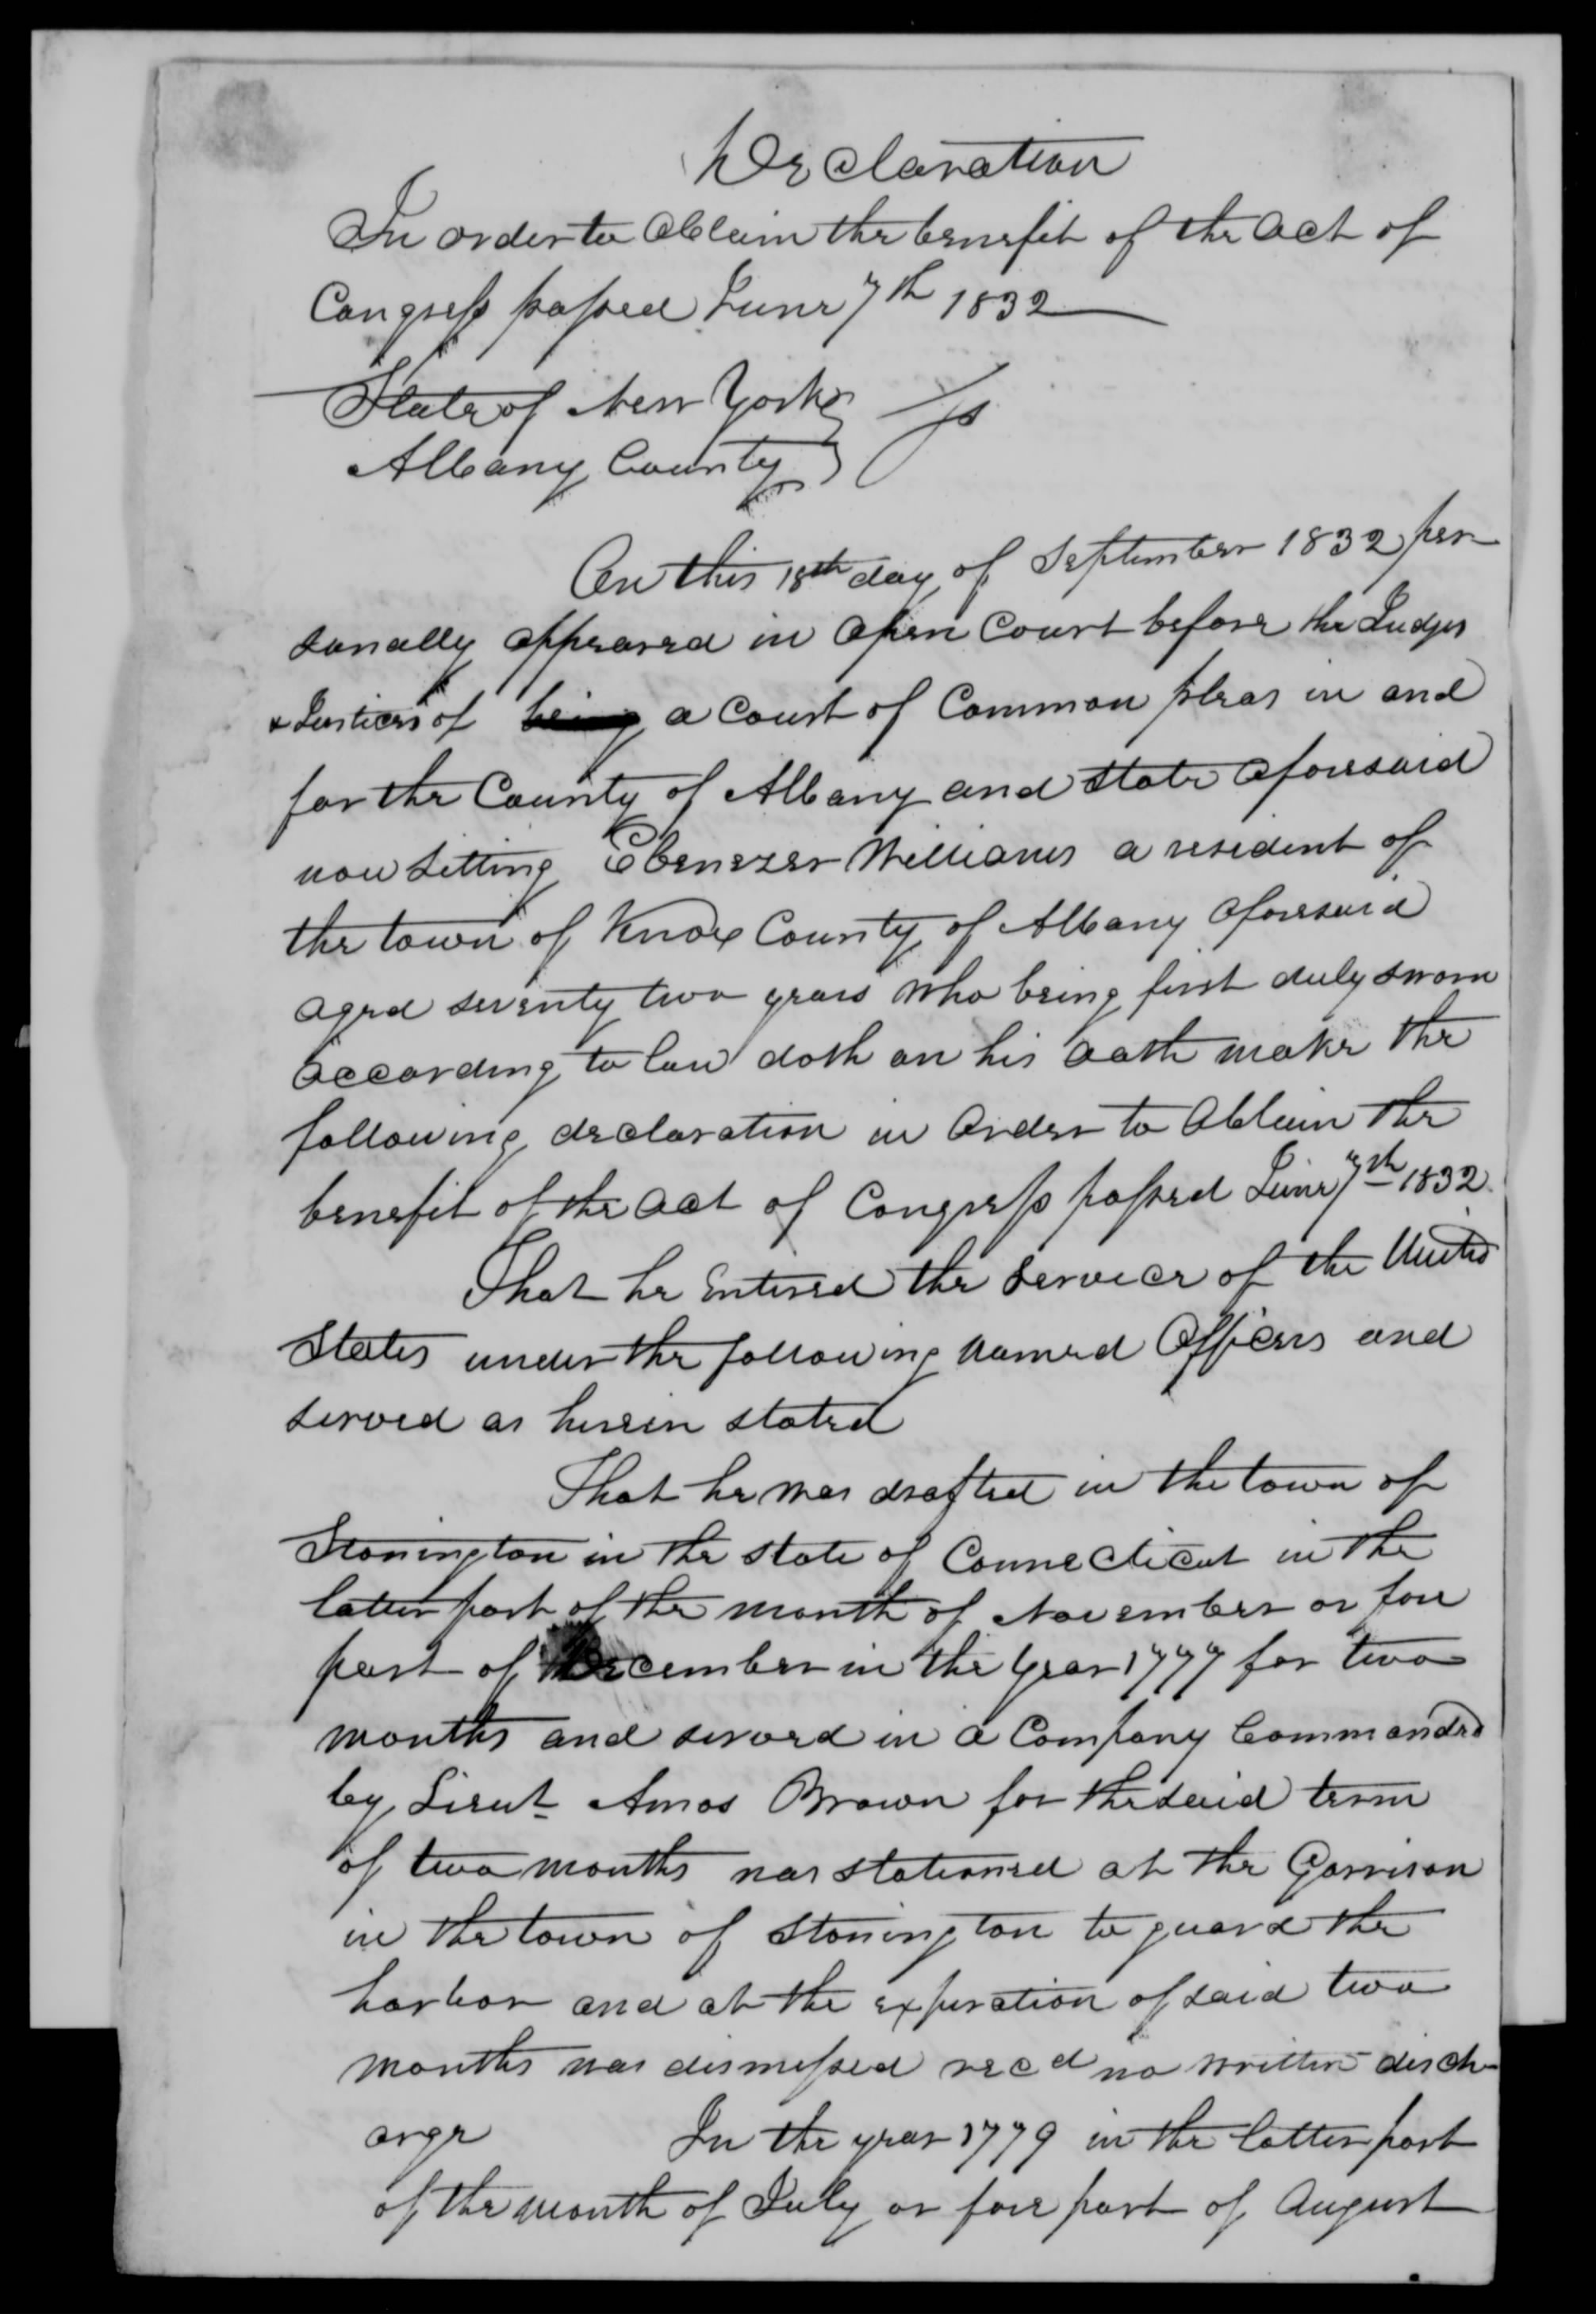 Declaration
In order to Obtain the benefit of the Act of
Congress passed June 7th 1832
State of New York } ss
Albany County }
On this 18th day of September 1832 per
sonally appeared in Open Court before the Judges
& Justices of being a Court of Common pleas in and
for the County of Albany and State aforesaid
now sitting Ebenezer Williams a resident of
the town of Knox County of Albany aforesaid
aged seventy two years who being first duly sworn
according to law doth on his oath make the
following declaration in Order to Obtain the
benefit of the Act of Congress passed June 7th 1832.
That he Entered the Service of the United
States under the following named Officers and
served as herein stated
That he was drafted in the town of
Stonington in the State of Connecticut in the
latter part of the month of November or fore
part of December in the Year 1777 for two
months and served in a Company Commanded
by Lieut Amos Brown for the said term
of two months was stationed at the Garrison
in the town of Stonington to guard the
harbor and at the expiration of said two
months was dismissed recd no written disch
arge In the year 1779 in the latter part
of the month of July or fore part of August